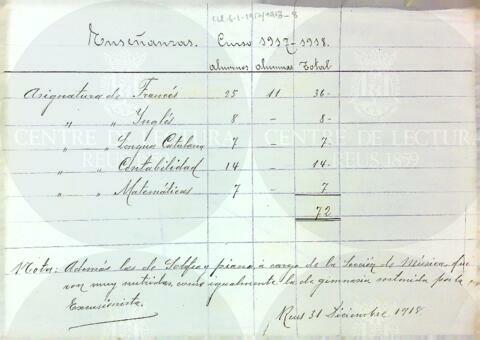 Cll 6-1-1917/1918-8
Enseñanzas. Curso 1917-1918.
alumnos alumnas Total
Asignatura de Francés 25 11 36-
" " Inglés 8 - 8-
" " Lengua Catalana 7 - 7-
" " Contabilidad 14 - 14-
" " Matemáticas 7 - 7
72
Nota: Además las de Solfeo y piano, á cargo de la Sección de Música que
son muy nutridas, como igualmente la de gimnasia sostenida por la
Excursionista.
Reus 31 Diciembre 1918.
CENTRE DE LECTURA
REUS 1859
CENTRE DE LECTURA
REUS 1859